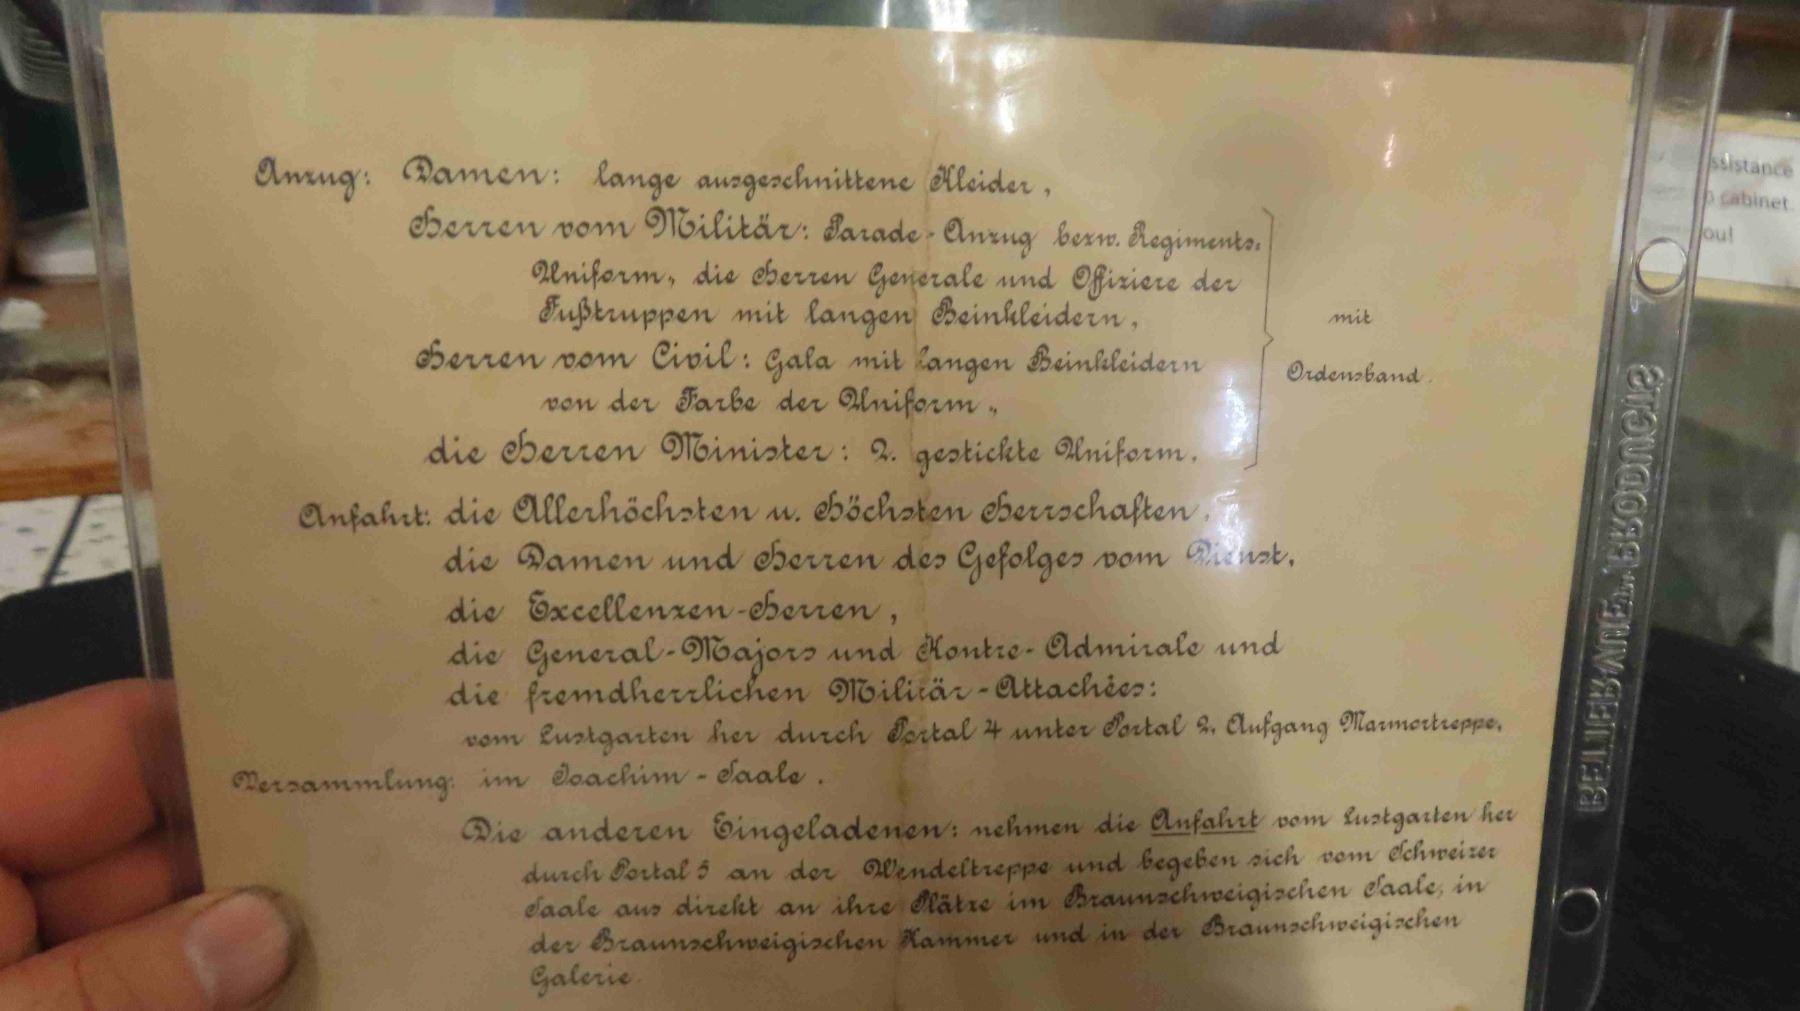 Anzug: Damen: lange ausgeschnittene Kleider,
Herren vom Militär: Parade-Anzug bezw. Regiments-
Uniform, die Herren Generale und Offiziere der
Fußtruppen mit langen Beinkleidern,
Herren vom Civil: Gala mit langen Beinkleidern
von der Farbe der Uniform,
die Herren Minister: 2. gestickte Uniform.
mit
Ordensband.
Anfahrt: die Allerhöchsten u. Höchsten Herrschaften,
die Damen und Herren des Gefolges vom Dienst,
die Excellenzen-Herren,
die General-Majors und Kontre-Admirale und
die fremdherrlichen Militär-Attachées:
vom Lustgarten her durch Portal 4 unter Portal 2, Aufgang Marmortreppe.
Versammlung: im Joachim-Saale.
Die anderen Eingeladenen: nehmen die Anfahrt vom Lustgarten her
durch Portal 5 an der Wendeltreppe und begeben sich vom Schweizer
Saale aus direkt an ihre Plätze im Braunschweigischen Saale, in
der Braunschweigischen Kammer und in der Braunschweigischen
Galerie.
ssistance
cabinet.
ou!